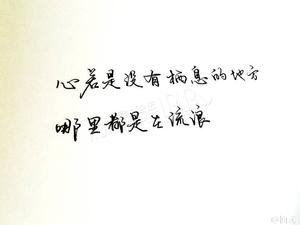 心若是没有栖息的地方
哪里都是在流浪